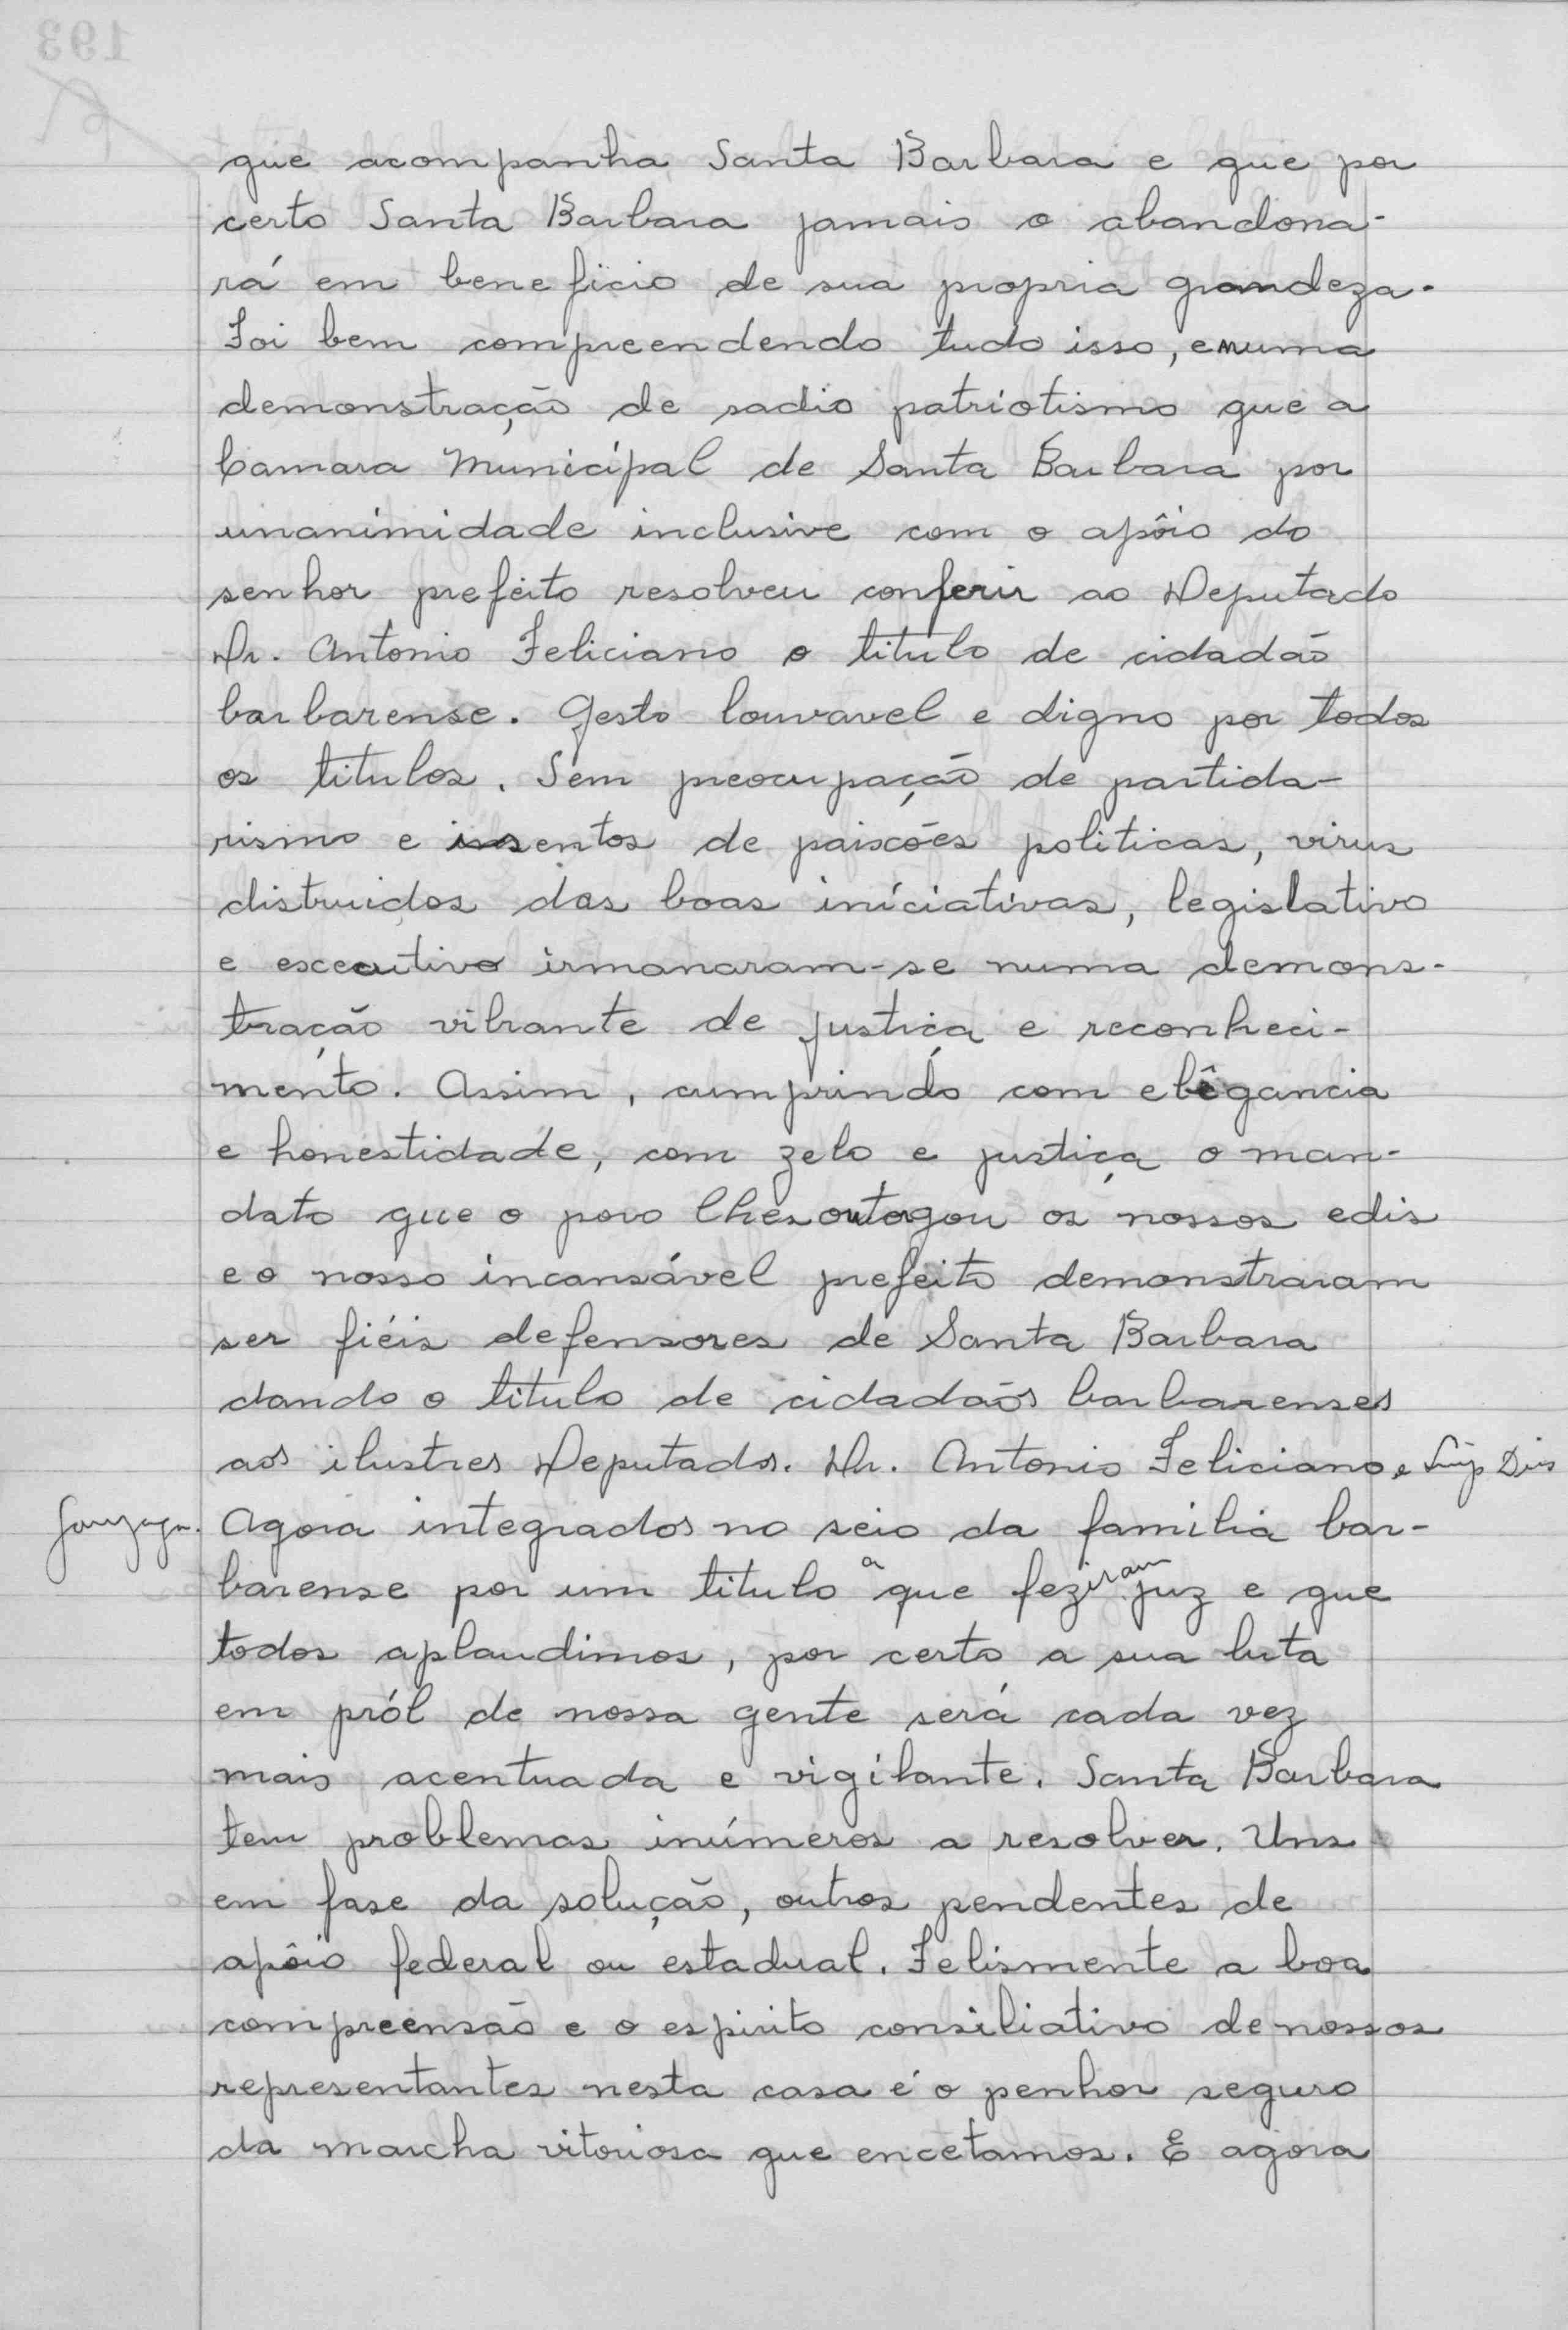 que acompanha Santa Barbara e que por
certo Santa Barbara jamais o abandona-
rá em beneficio de sua propria grandeza.
Foi bem compreendendo tudo isso, e numa
demonstração de sadio patriotismo que a
Camara Municipal de Santa Barbara por
unanimidade inclusive com o apôio do
senhor prefeito resolveu conferir ao Deputado
Dr. Antonio Feliciano o titulo de cidadão
barbarense. Gesto louvavel e digno por todos
os titulos. Sem preocupação de partida-
rismo e issentos de paixões politicas, virus
distruidos das boas iniciativas, legislativo
e executivo irmanaram-se numa demons-
tração vibrante de justiça e reconheci-
mento. Assim, cumprindo com elêgancia
e honestidade, com zelo e justiça o man-
dato que o povo lhes outorgou os nossos edis
e o nosso incansável prefeito demonstraram
ser fiéis defensores de Santa Barbara
dando o titulo de cidadãos barbarenses
aos ilustres Deputados. Dr. Antonio Feliciano e Dias
Gonzaga. Agora integrados no seio da familia bar-
barense por um titulo a que fezeram juz e que
todos aplaudimos, por certo a sua luta
em pról de nossa gente será cada vez
mais acentuada e vigilante. Santa Barbara
tem problemas inúmeros a resolver. Uns
em fase da solução, outros pendentes de
apôio federal ou estadual. Felismente a boa
compreensão e o espirito consiliativo de nossos
representantes nesta casa é o penhor seguro
da marcha vitoriosa que encetamos. E agora